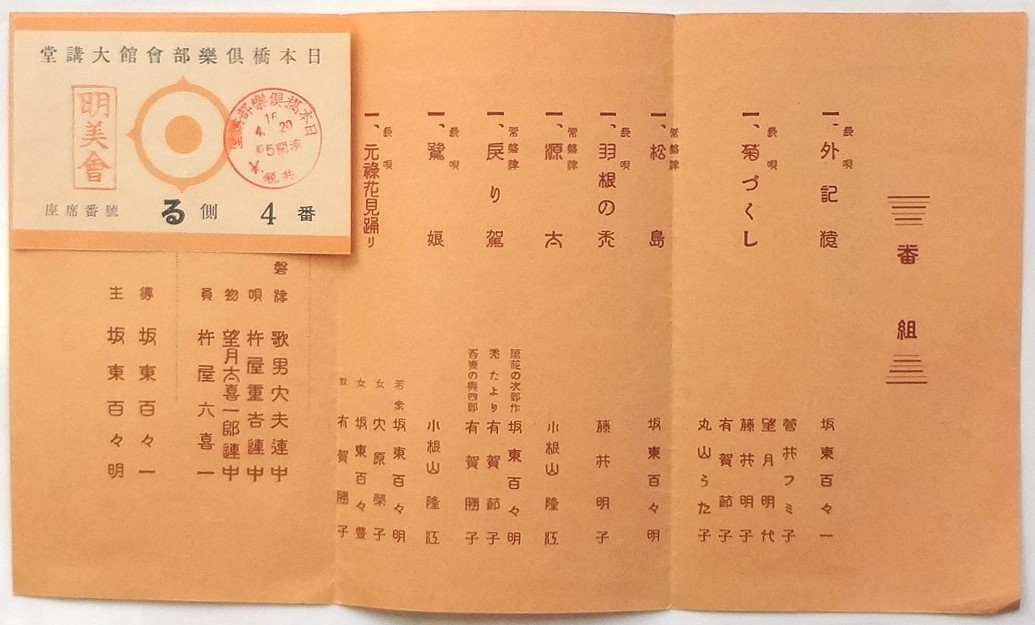 日本橋俱樂部會館大講堂
明美會
日本橋俱樂部
16
4. 20
座席番號 る側 4番
番組
一、長唄 外記猿
坂東百々一
一、長唄 菊づくし
菅井フミ子
望月明代
藤井明子
有賀節子
丸山うた子
一、常磐津 松島
坂東百々明
一、長唄 羽根の禿
藤井明子
一、常磐津 源太
小根山隆江
一、常磐津 戻り駕
浪花の次郎作 坂東百々明
禿たより 有賀節子
吾妻の與四郎 有賀勝子
一、長唄 鷺娘
小根山隆江
一、長唄 元祿花見踊り
若衆 坂東百々明
女 宍原榮子
女 坂東百々豊
奴 有賀勝子
磐津 歌男太夫連中
唄 杵屋重吉連中
物 望月太喜一郎連中
員 杵屋六喜一
導 坂東百々一
主 坂東百々明